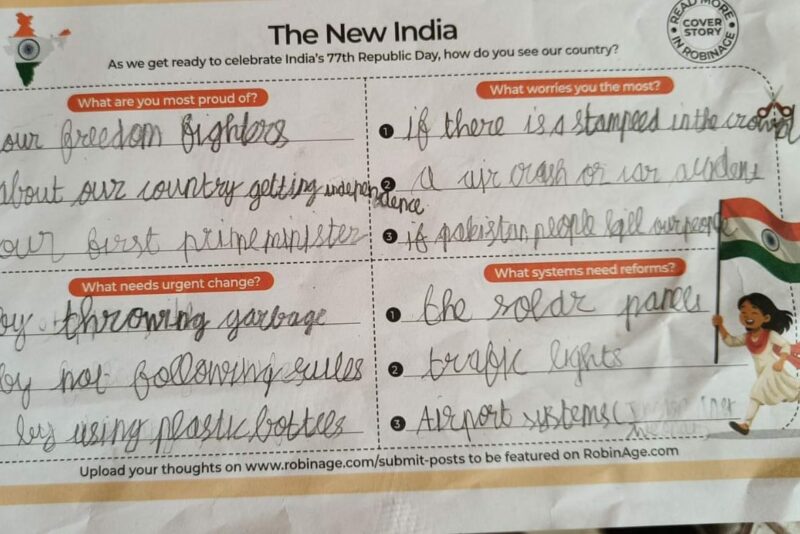 The New India
READ MORE
COVER STORY
IN ROBINAGE
As we get ready to celebrate India's 77th Republic Day, how do you see our country?
What are you most proud of?
our freedom fighters
about our country getting independence
our first prime minister
What worries you the most?
1 if there is a stampeed in the crowd
2 a air crash or car accident
3 if pakistan people kill our people
What needs urgent change?
by throwing garbage
by not following rules
by using plastic bottles
What systems need reforms?
1 the solar panels
2 trafic lights
3 Airport systems (
Upload your thoughts on www.robinage.com/submit-posts to be featured on RobinAge.com